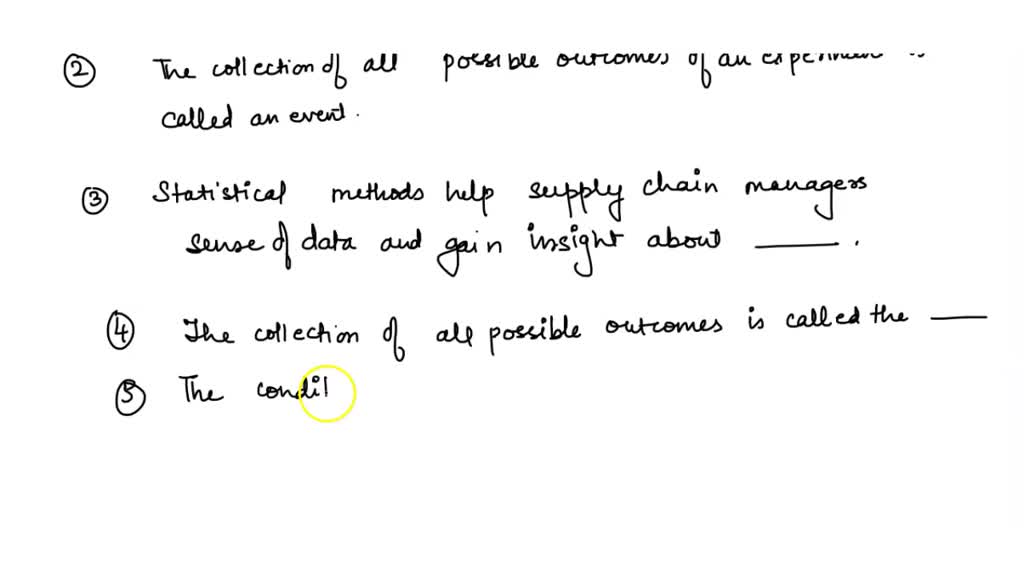 ② The collection of all possible outcomes of an experiment is
called an event.
③ Statistical methods help supply chain managers
sense of data and gain insight about ____.
④ The collection of all possible outcomes is called the ____
⑤ The condil